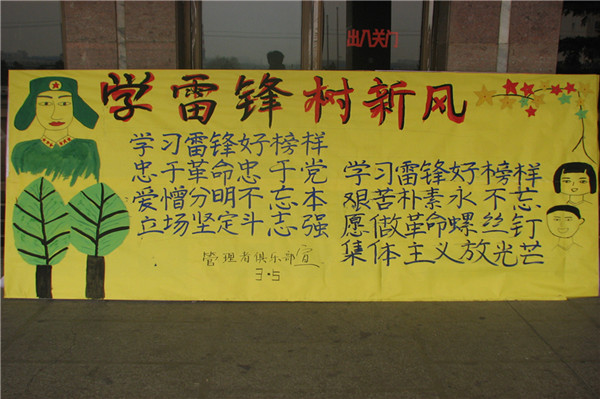 出入关门
学雷锋树新风
学习雷锋好榜样
忠于革命忠于党
爱憎分明不忘本
立场坚定斗志强
学习雷锋好榜样
艰苦朴素永不忘
愿做革命螺丝钉
集体主义放光芒
管理者俱乐部宣
3.5